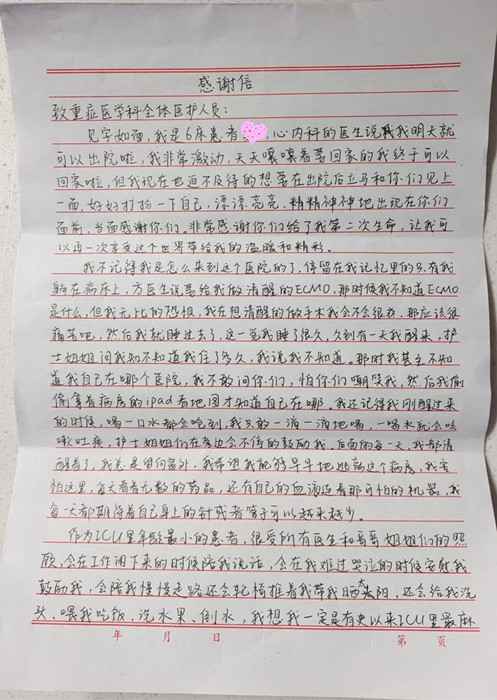 感谢信
致重症医学科全体医护人员：
见字如面，我是6床患者，心内科的医生说我明天就
可以出院啦，我非常激动，天天嚷嚷着要回家的我终于可以
回家啦，但我现在也迫不及待的想要在出院后立马和你们见上
一面，好好打扮一下自己，漂漂亮亮，精精神神地出现在你们
面前，当面感谢你们，非常感谢你们给了我第二次生命，让我可
以再一次享受这个世界带给我的温暖和精彩。
我不记得我是怎么来到这个医院的了，停留在我记忆里的只有我
躺在病床上，方医生说要给我做清醒的ECMO，那时候我不知道ECMO
是什么，但我无比的恐惧，我在想清醒的做手术我会不会很疼，那应该很
痛苦吧，然后我就睡过去了，这一觉我睡了很久，久到有一天我醒来，护
士姐姐问我知不知道我住了多久，我说我不知道。那时我甚至不知
道我自己在哪个医院，我不敢问你们，怕你们嘲笑我，然后我偷
偷拿着病房的ipad看地图才知道自己在哪，我还记得我刚醒过来
的时候，喝一口水都会呛到，我只敢一滴一滴地喝，一喝水就会咳
嗽吐痰，护士姐姐们在旁边会不停的鼓励我。后面的每一天，我都清
醒着了，我总是望向窗外，我希望我能够早早地逃离这个病房，我害
怕这里，每天看着无数的药品，还有自己的血液连着那可怕的机器，我
每一天都期待着自己身上的针或者管子可以越来越少。
作为ICU里年龄最小的患者，很受所有医生和哥哥姐姐们的照
顾，会在工作闲下来的时候陪我说话，会在我难过哭泣的时候安慰我
鼓励我，会陪我慢慢走路还会轮椅推着我带我晒太阳，还会给我洗
头、喂我吃饭、洗水果、倒水，我想我一定是有史以来ICU里最麻
年 月 日 第 页